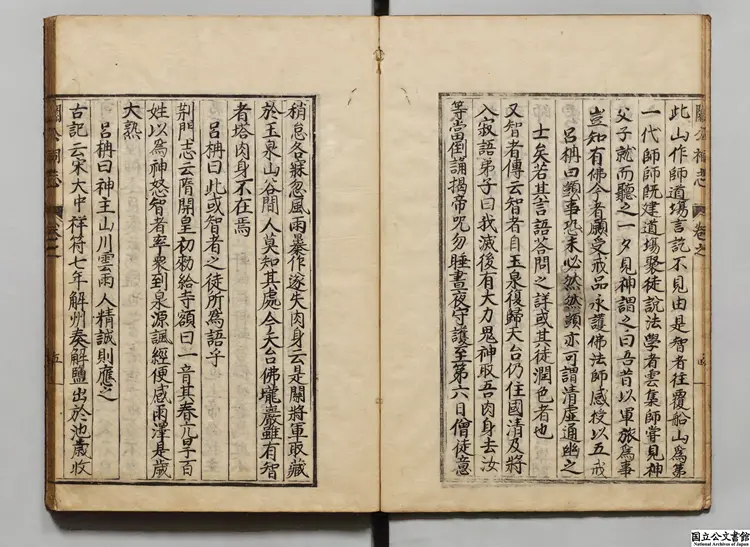 此山作師道場言訖不見由是智者往覆船山為第
一代師師既建道場聚徒說法學者雲集師嘗見神
父子就而聽之一夕見神謂之曰吾昔以軍旅為事
豈知有佛今者願受戒品永護佛法師感授以五戒
呂柟曰顗事恐未必然然顗亦可謂清虛通幽之
士矣若其言語答問之詳或其徒潤色者也
又智者傳云智者自玉泉復歸天台仍住國清及將
入寂語弟子曰我滅後有大力鬼神取吾肉身去汝
等當倒誦揭帝咒勿睡晝夜守護至第六日僧徒意
稍怠各寐忽風雨暴作遂失肉身云是關將軍取藏
於玉泉山谷間人莫知其處今天台佛壠巖雖有智
者塔肉身不在焉
呂柟曰此或智者之徒所為語乎
荊門志云隋開皇初勑給寺額曰一音其春亢旱百
姓以為神怒智者率衆到泉源諷經便感雨澤是歲
大熟
呂柟曰神主山川雲雨人精誠則應之
古記云宋大中祥符七年解州奏解鹽出於池歲收
国立公文書館
National Archives of Japan